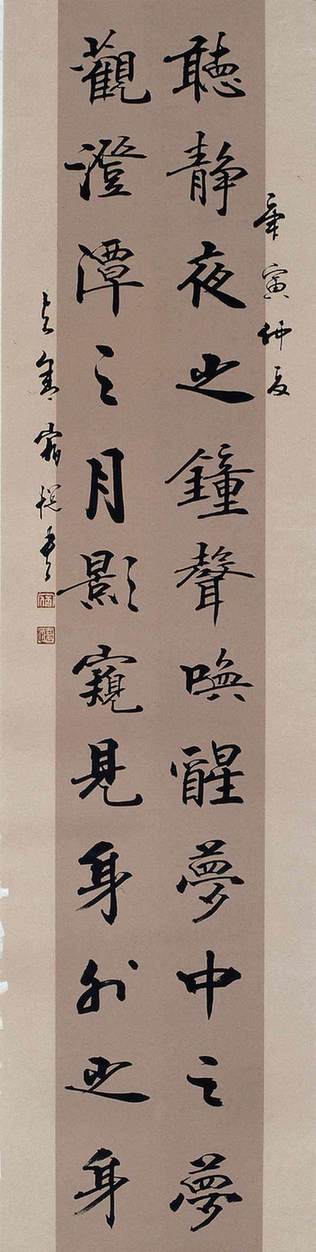 聽靜夜之鐘聲喚醒夢中之夢
觀澄潭之月影窺見身外之身
寅仲夏